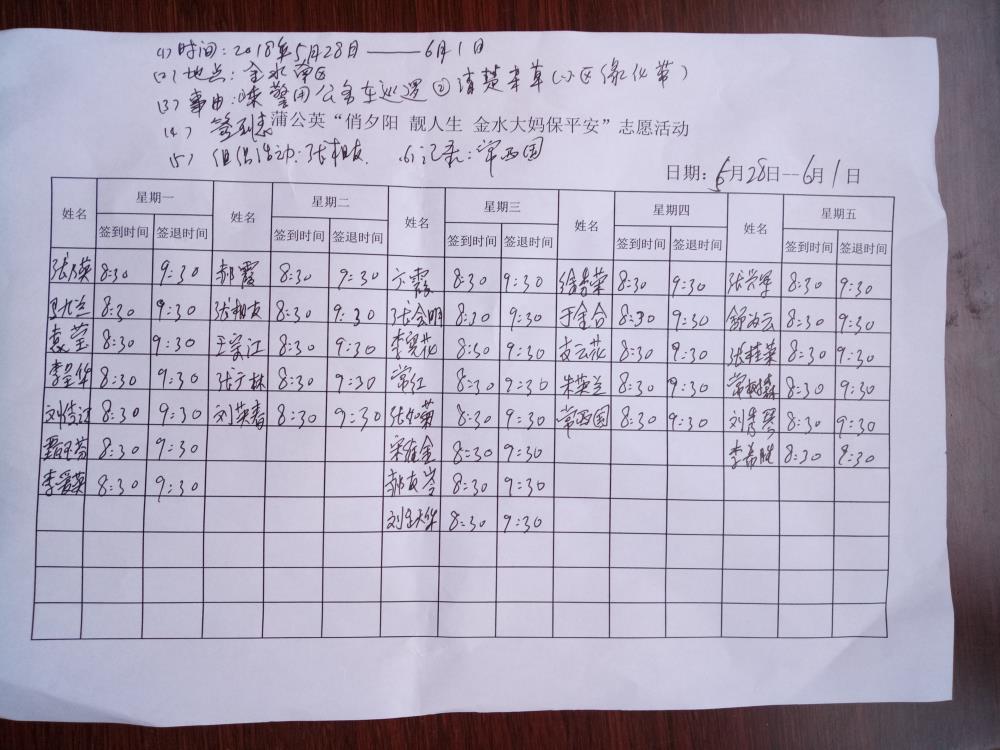 (1) 时间:2018年5月28日——6月1日
(2) 地点:金水南区
(3) 事由:警用公务车巡逻②清楚杂草(小区绿化带)
(4) 签到表
蒲公英“俏夕阳 靓人生 金水大妈保平安”志愿活动
(5) 组织活动:张相友. 记录:常西国
日期:5月28日--6月1日
姓名 星期一 姓名 星期二 姓名 星期三 姓名 星期四 姓名 星期五
签到时间 签退时间 签到时间 签退时间 签到时间 签退时间 签到时间 签退时间 签到时间 签退时间
8:30 9:30 郝霞 8:30 9:30 8:30 9:30 8:30 9:30 8:30 9:30
8:30 9:30 张相友 8:30 9:30 张会明 8:30 9:30 于金台 8:30 9:30 8:30 9:30
袁莹 8:30 9:30 王宗江 8:30 9:30 8:30 9:30 支云花 8:30 9:30 张桂荣 8:30 9:30
8:30 9:30 张广林 8:30 9:30 常红 8:30 9:30 朱英兰 8:30 9:30 常树森 8:30 9:30
8:30 9:30 刘英春 8:30 9:30 8:30 9:30 常西国 8:30 9:30 刘青琴 8:30 9:30
8:30 9:30 8:30 9:30 8:30 8:30
李爱英 8:30 9:30 郝友岑 8:30 9:30
8:30 9:30